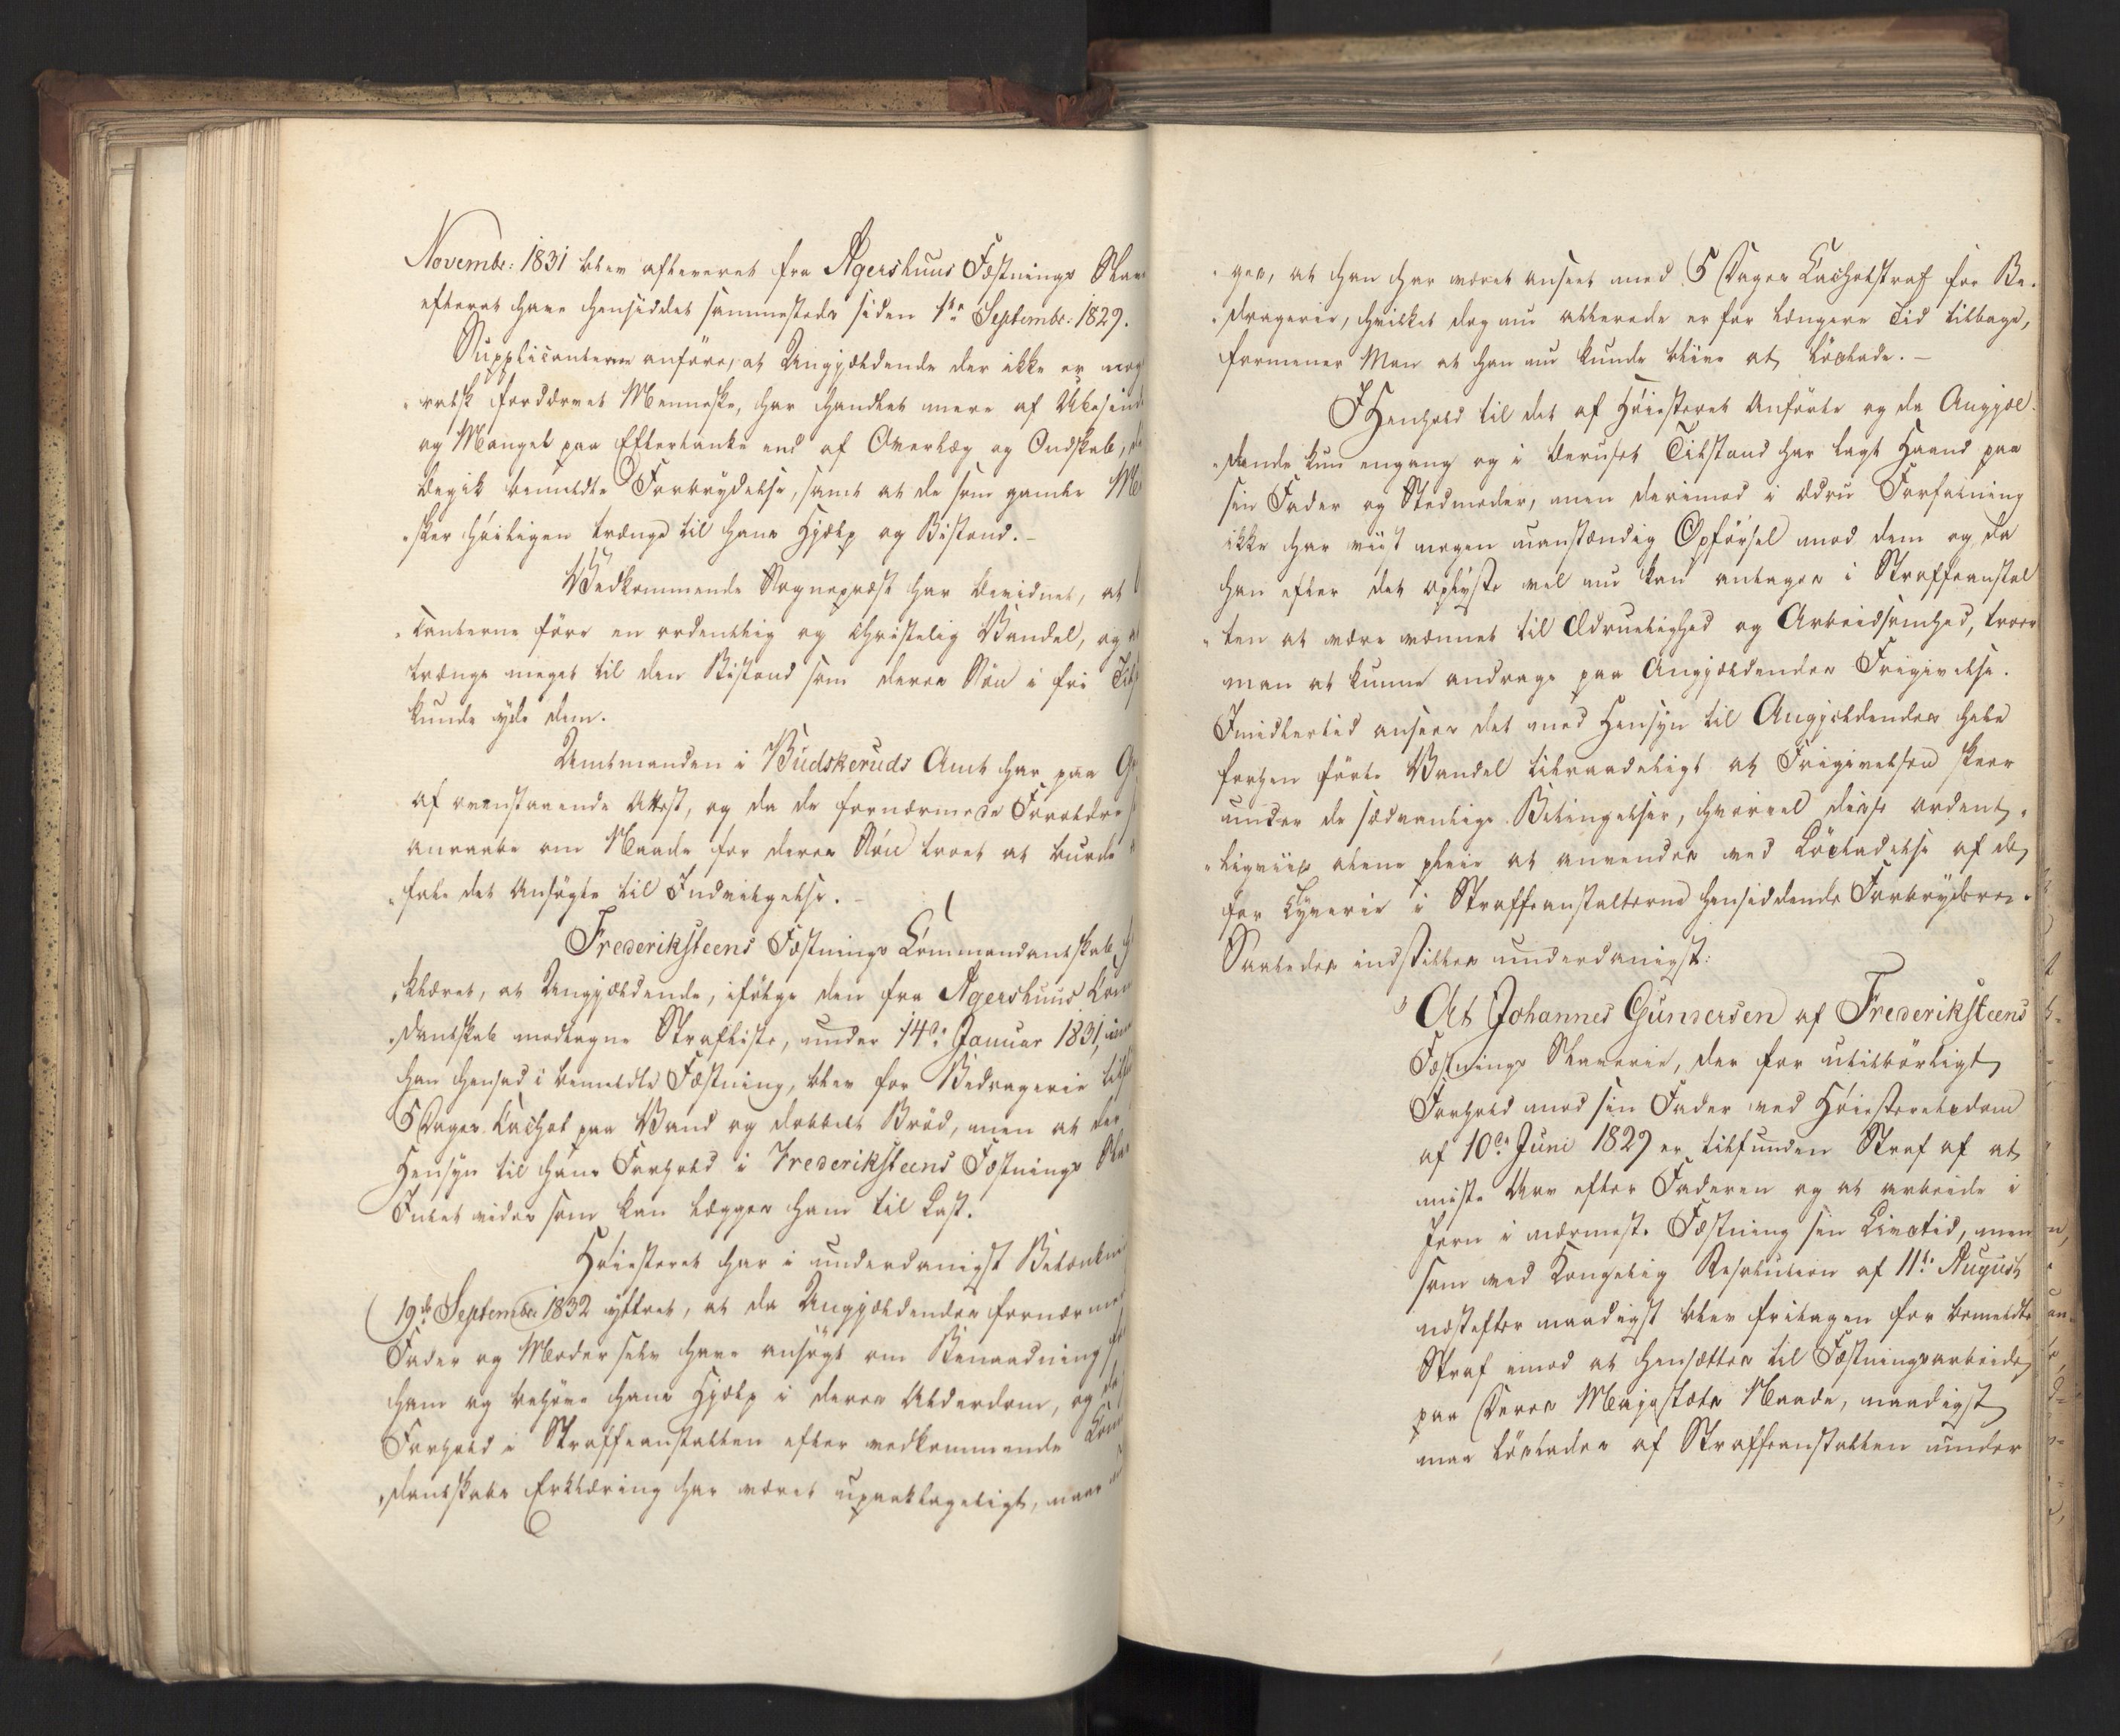 Novembr: 1831 blev afleveret fra Agershuus Fæstnings
efteret have hensiddet sammesteds siden 1ste Septembr: 1829.
Supplicanterne anføre, at Angjældende der ikke er
"ralsk fordærvet Menneske, har handlet mere af
og Mangel paa Eftertanke end af Overlæg og Ondskab,
begik bemeldte Forbrydelse, samt at de som gamle
"sker høiligen trænge til hans Hjælp og Bistand. –
Vedkommende Sognepræst har bevidnet, at
"canterne føre en ordentlig og christelig Vandel, og
trænge meget til den Bistand som deres Søn i fri
kunde yde dem.
Amtmanden i Budskeruds Amt har paa
af ovenstaaende Attest, og da de fornærmede Forældre
anraabe om Naade for deres Søn troet at burde
"fale det Ansøgte til Indvilgelse. –
Frederiksteens Fæstnings Commandantskab
"klæret, at Angjældende, ifølge den fra Agershuus
"dantskab modtagne Strafliste, under 14de Januar 1831,
han hensad i bemeldte Fæstning, blev for Bedragerie
5 Dages Cachot paa Vand og dobbelt Brød, men at der
Hensyn til hans Forhold i Frederiksteens Fæstnings
Intet vides som kan lægges ham til Last.
Høiesteret har i underdanigst
19de September 1832 yttret, at da Angjældendes
Fader og Moder selv have ansøgt om Benaadning
ham og behøve hans Hjælp i deres Alderdom, og
Forhold i Straffeanstalten efter vedkommende
"dantskabs Erklæring har været upaaklageligt, naar
"ges, at han har været anseet med 5 Dages Cachotstraf for Be-
"dragerie, hvilket dog nu allerede er for længere Tid tilbage,
formener Man at han nu kunde blive at løslade. –
I Henhold til det af Høiesteret Anførte og da Angjæl-
"dende kun engang og i beruset Tilstand har lagt Haand paa
sin Fader og Stedmoder, men derimod i ædru Forfatning
ikke har viist nogen uanstændig Opførsel mod dem og da
han efter det oplyste vel nu kan antages i Straffeanstal
"ten at være vænnet til Ædruelighed og Arbeidsomhed, troer
man at kunne andrage paa Angjældendes Frigivelse.
Imidlertid ansees det med Hensyn til Angjeldendes hele
forhen førte Vandel tilraadeligt at Frigivelsen skeer
under de sædvanlige Betingelser, hvorvel disse ordent-
"ligviis alene pleie at anvendes ved Løsladelse af de
for Tyverie i Straffeanstalterne hensiddende Forbrydere.
Saaledes indstilles underdanigst:
"At Johannes Gundersen af Frederiksteens
Fæstnings Slaverie, der for utilbørligt
Forhold mod sin Fader ved Høiesteretsdom
af 10de Juni 1829 er tilfunden Straf af at
miste Arv efter Faderen og at arbeide i
Jern i nærmeste Fæstning sin Livstid, men
som ved Kongelig Resolution af 11te August
næstefter naadigst blev fritagen for bemeldte
Straf imod at hensættes til Fæstningsarbeide
paa Deres Majestæts Naade, naadigst
maa løslades af Straffeanstalten under